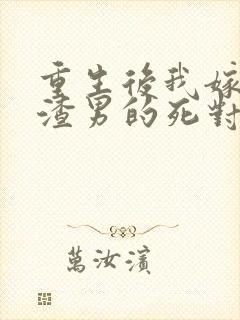 重生後我嫁
渣男的死對
萬汝濱